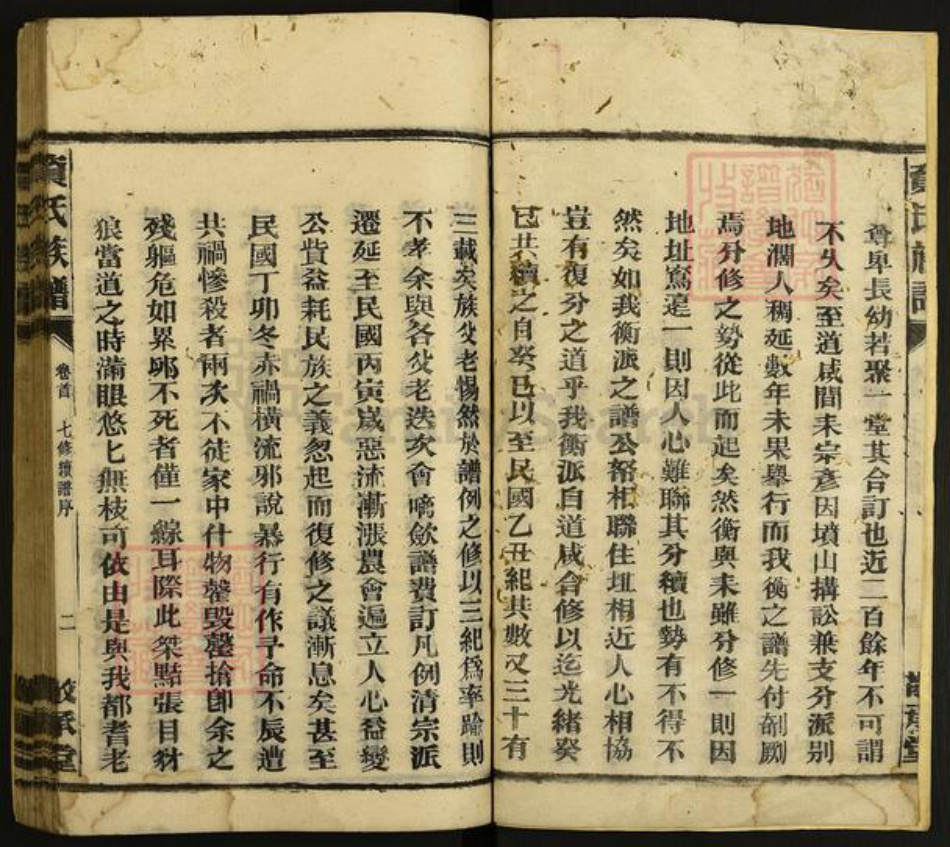 尊卑長幼若聚一堂其合訂也近二百餘年不可謂
不久矣至道咸間耒宗彥因墳山搆訟兼支分派別
地濶人稠延數年未果舉行而我衡之譜先付剞劂
焉分修之勢從此而起矣然衡與耒雖分修一則因
地址寫遠一則因人心難聯其分續也勢有不得不
然矣如我衡派之譜公帑相聯住址相近人心相協
豈有復分之道乎我衡派自道咸合修以迄光緒癸
巳共續之自癸巳以至民國乙丑紀其數又三十有
三載矣族父老惕然於譜例之修以三紀爲率踰則
不孝余與各父老迭次會商歛譜費訂凡例清宗派
遷延至民國丙寅嵗惡流漸漲農會遍立人心益變
公貲益耗民族之義忽起而復修之議漸息矣甚至
民國丁卯冬赤禍橫流邪說暴行有作予命不辰遭
共禍慘殺者兩次不徒家中什物罄毀罄搶卽余之
殘軀危如累卵不死者僅一線耳際此桀黠張目豺
狼當道之時滿眼悠匕無枝可依由是與我都耆老
氏族譜
卷首
七修續譜序
二
堂